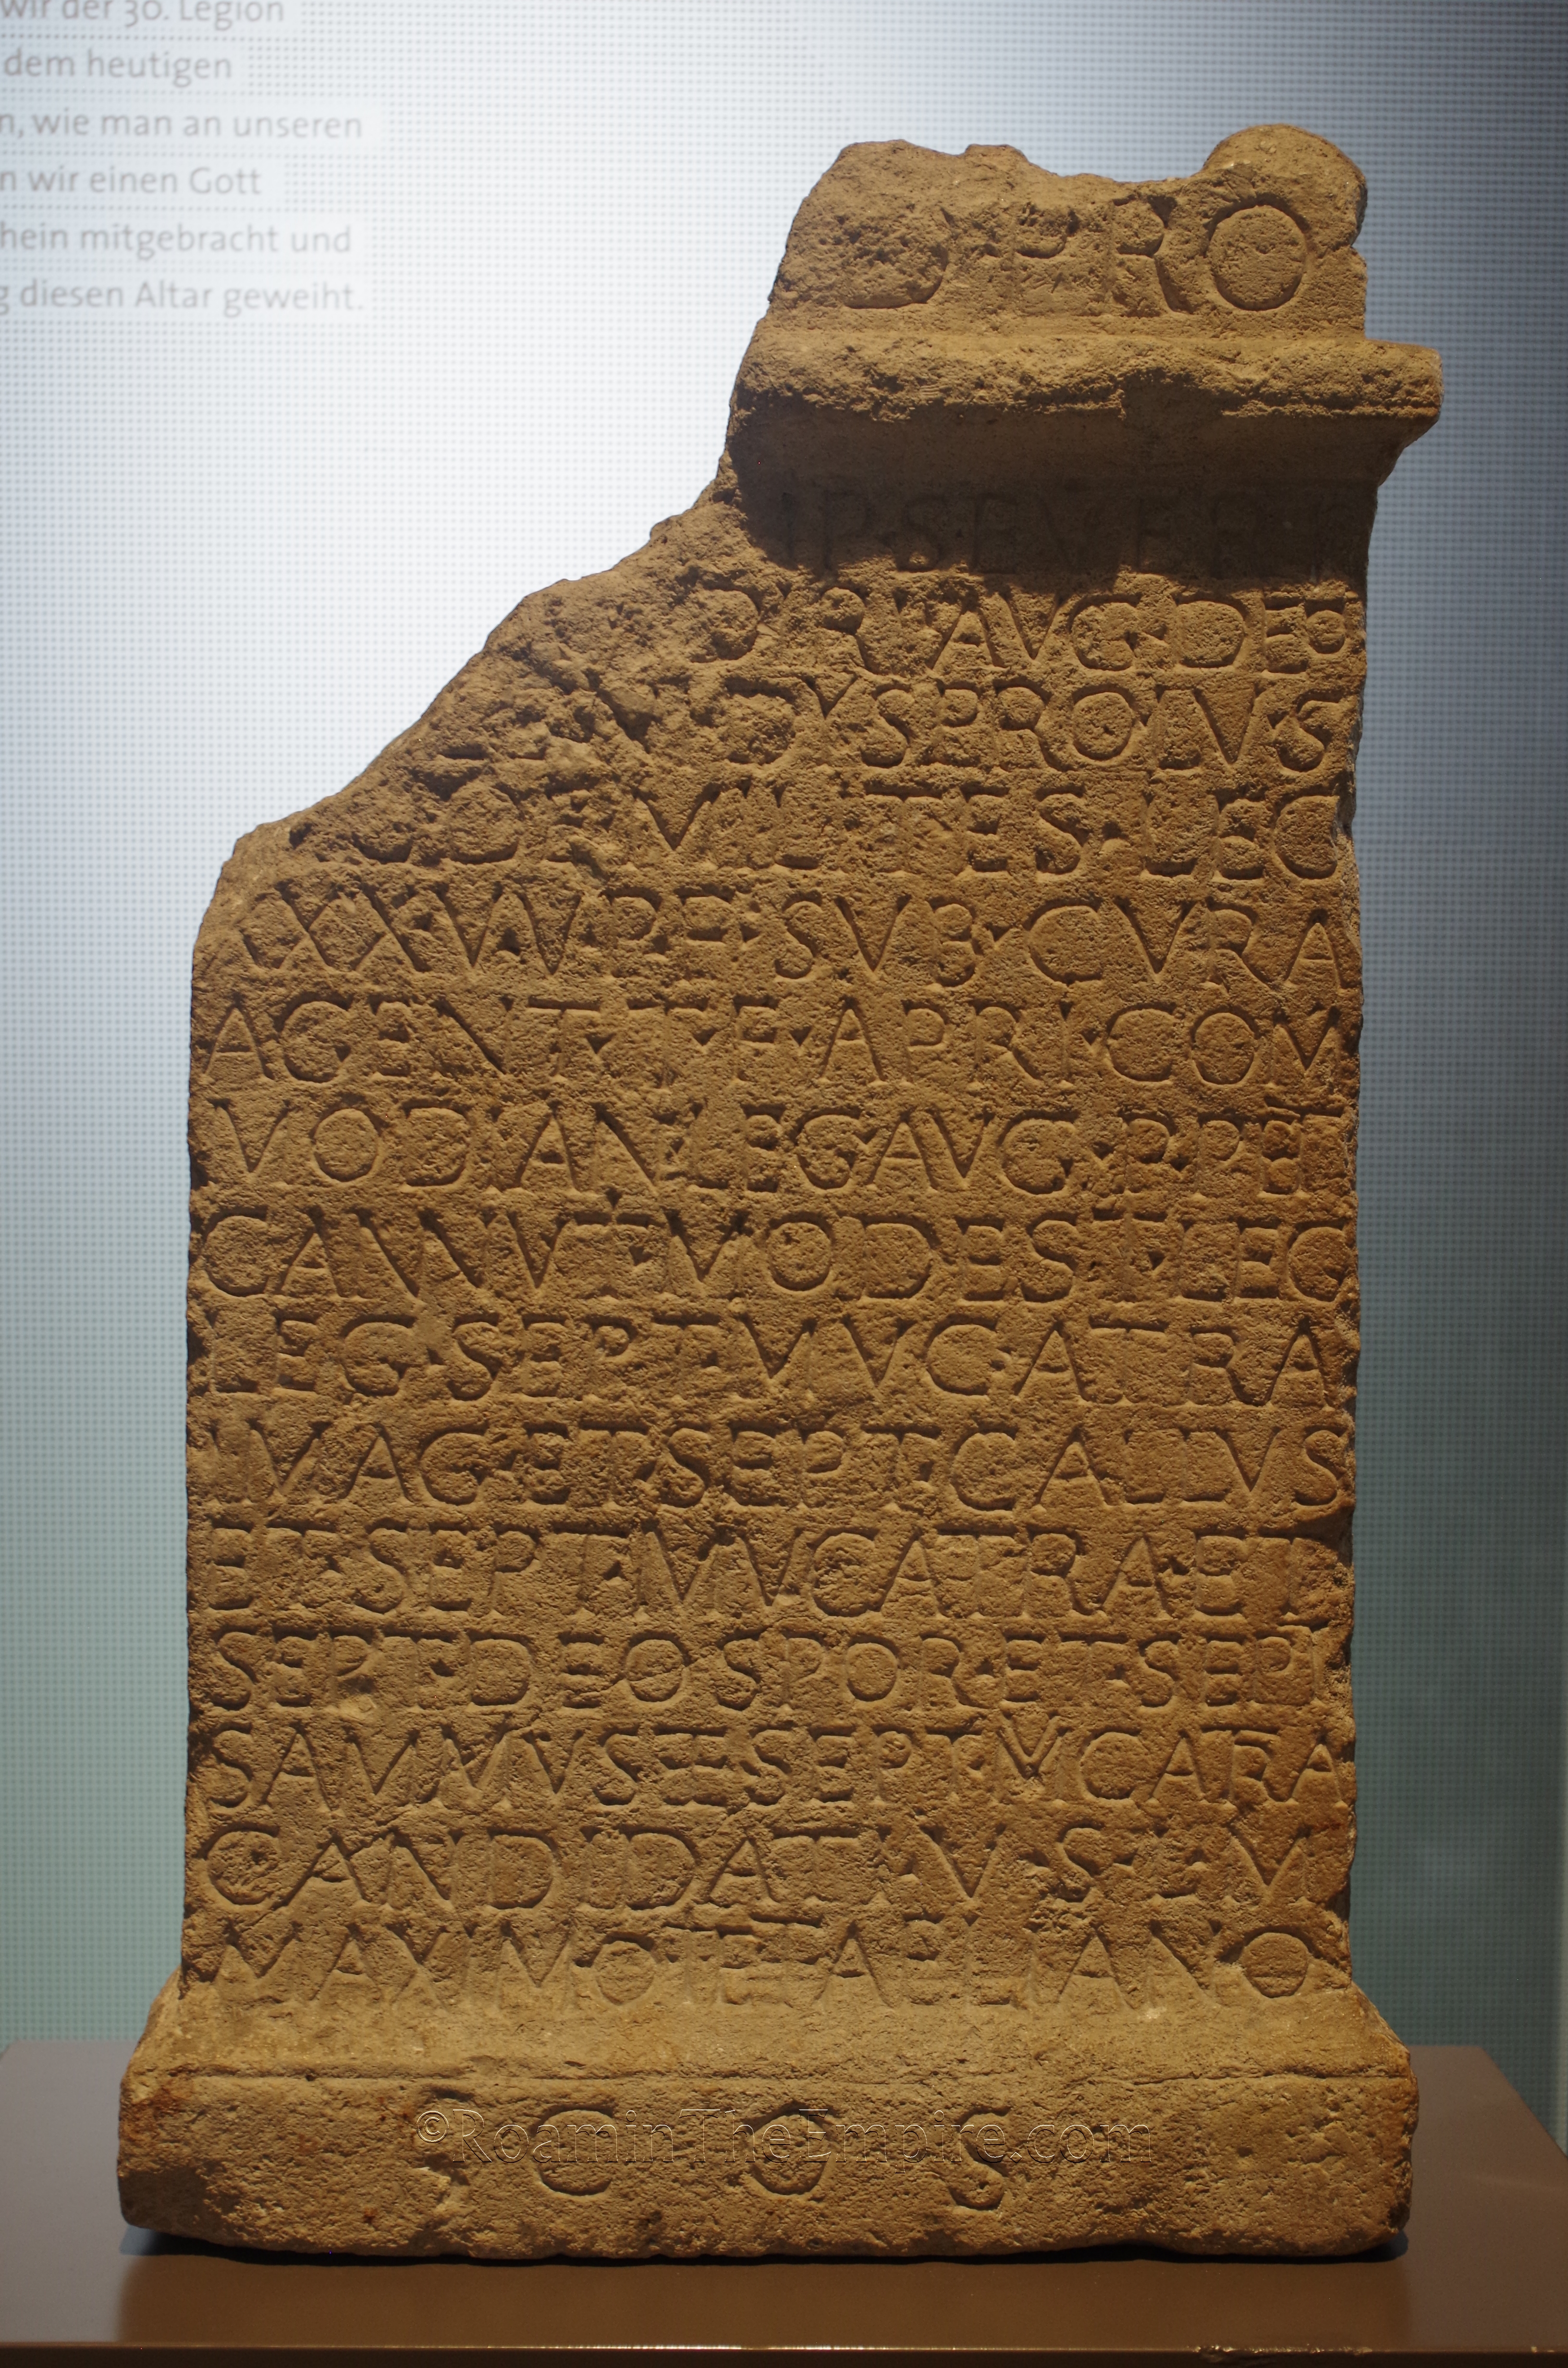 wir der 30. Legion
dem heutigen
n, wie man an unseren
n wir einen Gott
hein mitgebracht und
g diesen Altar geweiht.
D PRO
IP·SEVERI
AVG·DEO
DVS PRO IVS
MILITES·LEG
XXX VV PF·SVB·CVRA
AGENT·T·F·APRI·COM
MODIANI LEG AVG·P·P·ET
CANNVT·MODEST·LEG
LEG·SEPT·MVCATRA
IVAG·ET·SEPT·GALLVS
ET·SEPT·MVCATRA·ET
SEPT·DEOSPOR·ET·SEPT
CANDIDATIANV·S·LM
MAXIMO·ET·AELIANO
COS
©RoaminTheEmpire.com